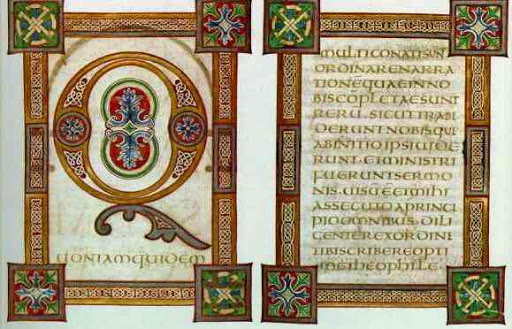 Q
UONIAMQUIDEM
MULTICONATISUN
ORDINARENARRA
TIONEQUAEINNO
BISCOPLETAESUNT
RERU SICUTTRADI
DERUNTNOBISQUI
ABINITIOIPSIUIDE
RUNTETMINISTRI
FUERUNTSERMO
NIS UISUEETMIHI
ASSECUTOAPRINCI
PIOOMNIBUS DILI
GENTEREXORDINE
TIBISCRIBEREOPTI
METHEOPHILE